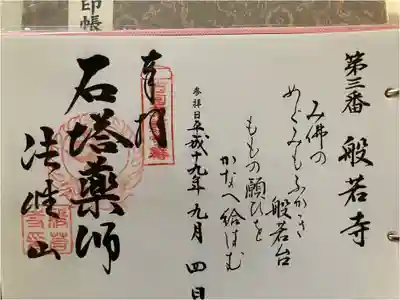 印帳
第三番 般若寺
み佛の
めぐみもふかき
般若台
ももの願ひを
かなへ給はむ
参拝日 平成十九年 九月 四日
奉拝
石塔薬師
法性山